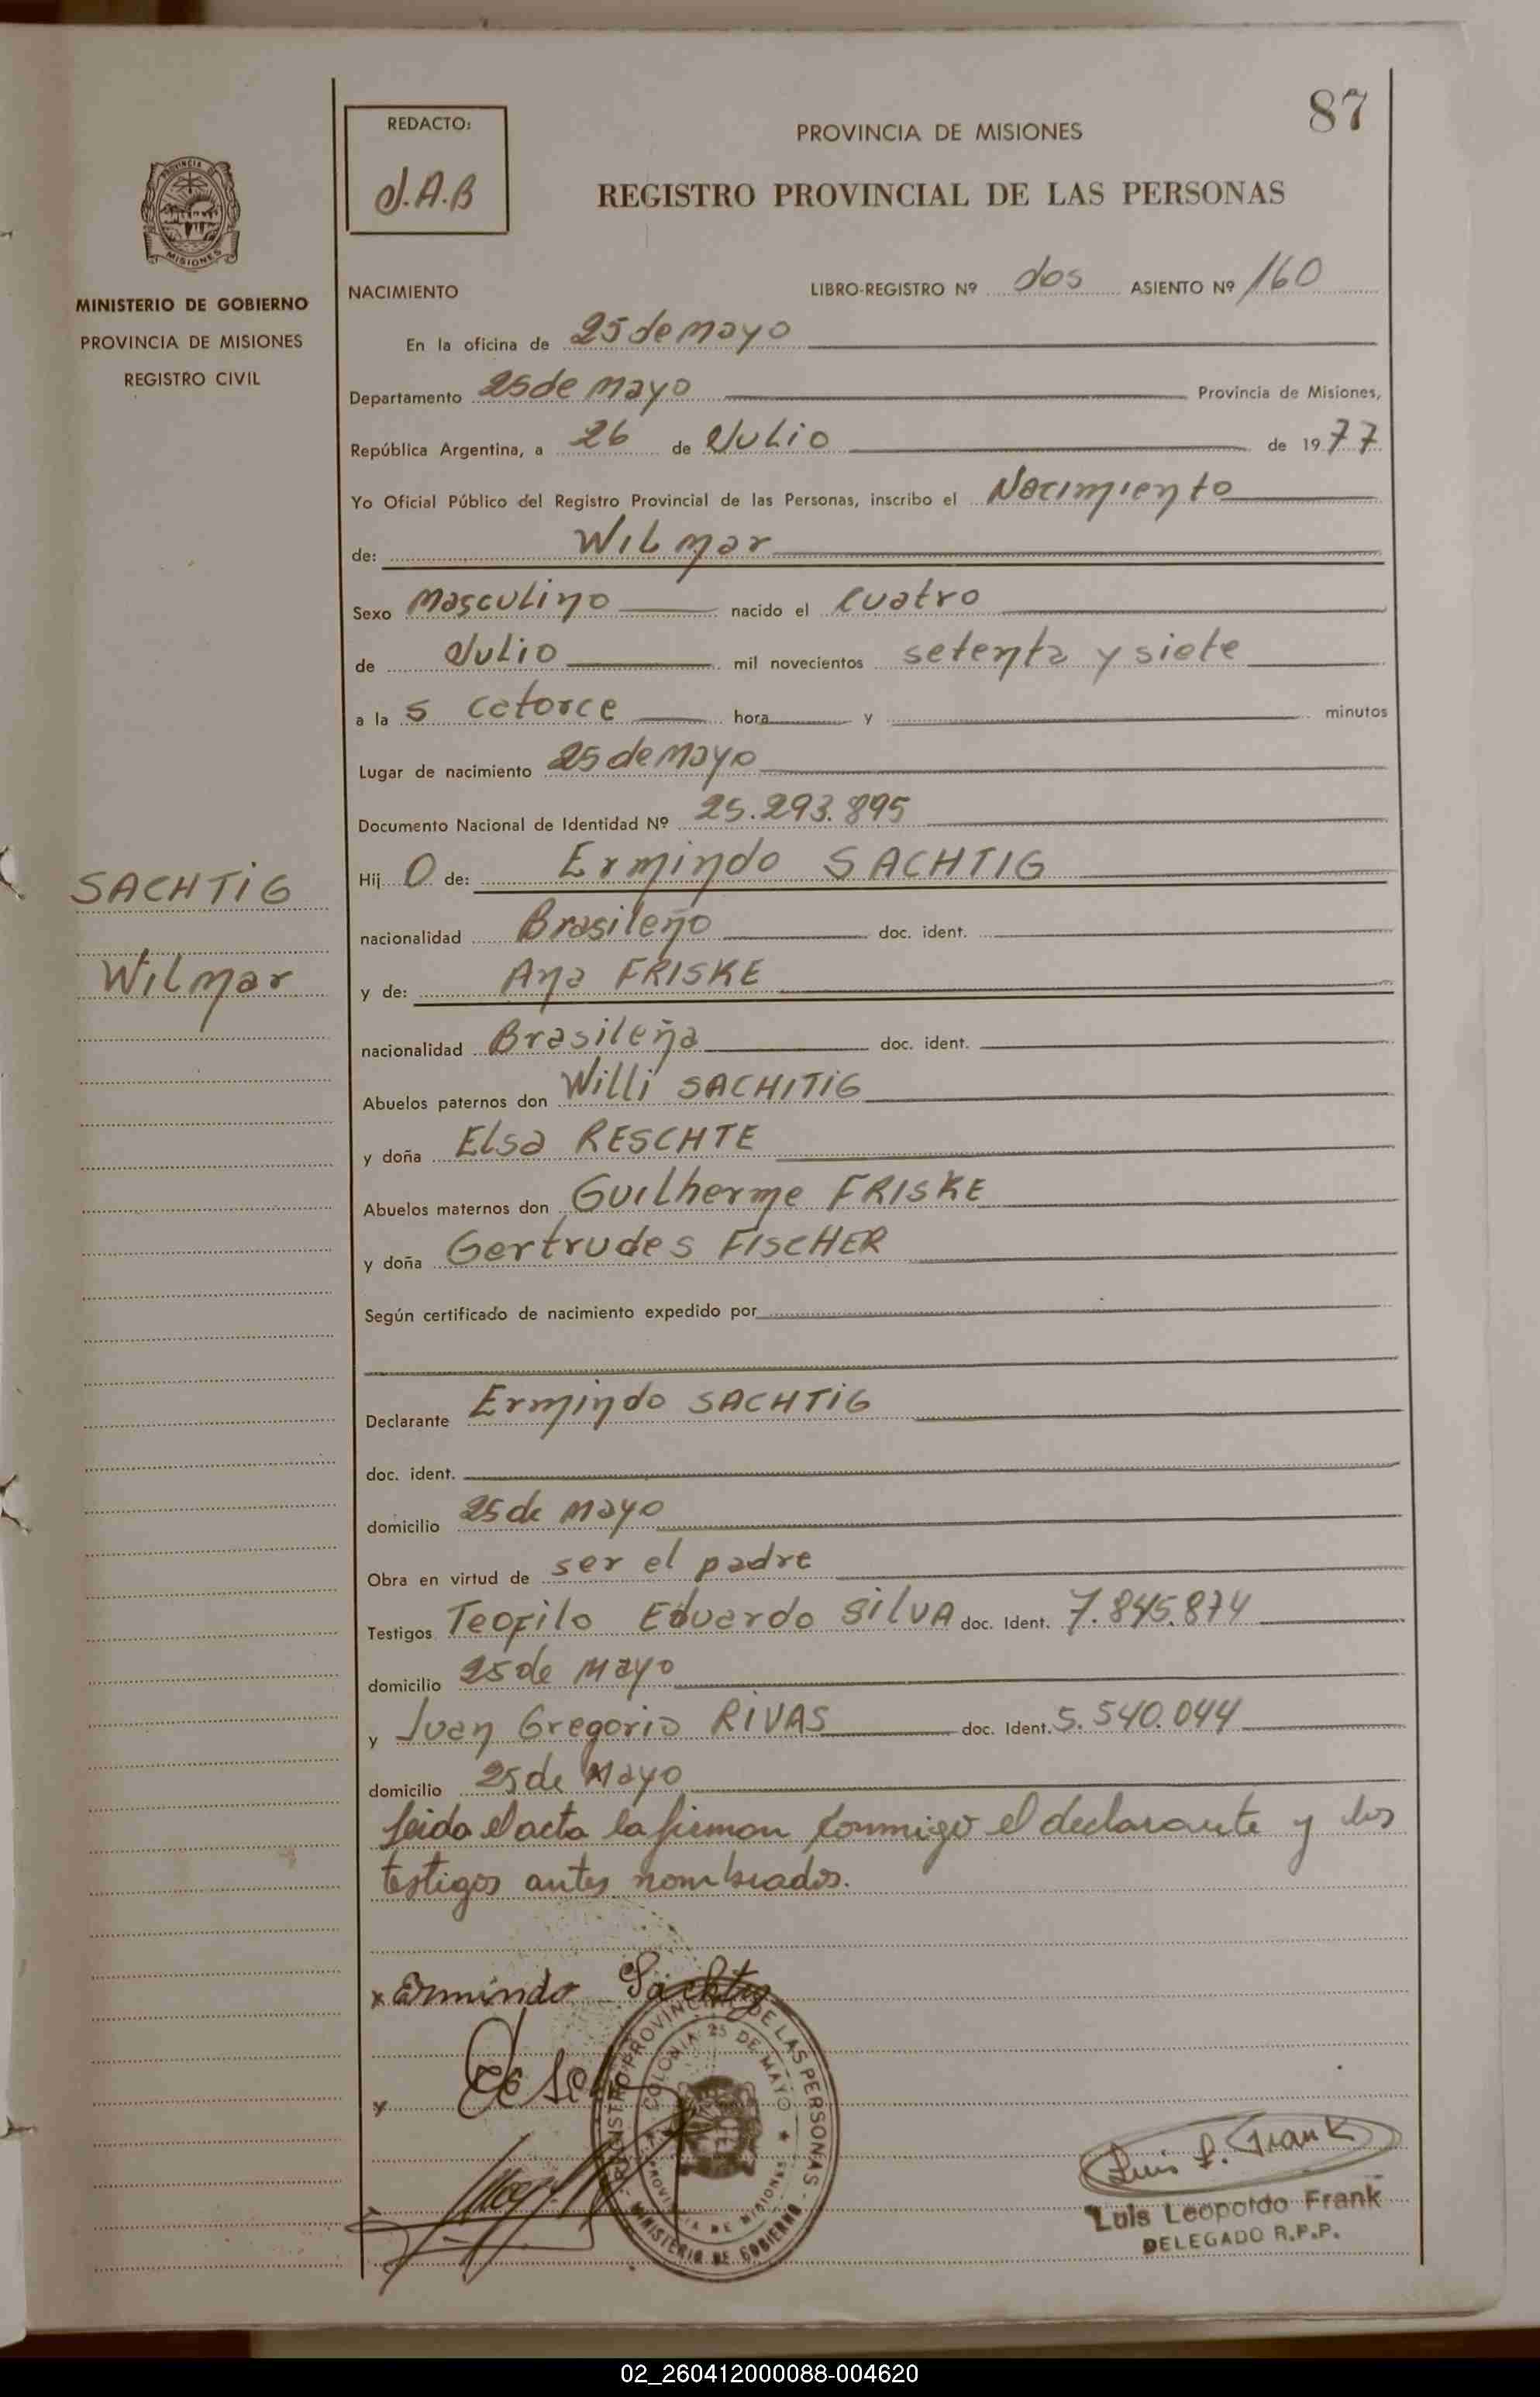 87
REDACTO:
J.A.B
PROVINCIA DE MISIONES
REGISTRO PROVINCIAL DE LAS PERSONAS
PROVINCIA
MISIONES
MINISTERIO DE GOBIERNO
PROVINCIA DE MISIONES
REGISTRO CIVIL
NACIMIENTO LIBRO-REGISTRO Nº dos ASIENTO Nº 160
En la oficina de 25 de mayo
Departamento 25 de mayo Provincia de Misiones,
República Argentina, a 26 de Julio de 1977
Yo Oficial Público del Registro Provincial de las Personas, inscribo el Nacimiento
de: Wilmar
Sexo Masculino nacido el cuatro
de Julio mil novecientos setenta y siete
a la s catorce hora y minutos
Lugar de nacimiento 25 de mayo
Documento Nacional de Identidad Nº 25.293.895
SACHTIG
Wilmar
Hij O de: Ermindo SACHTIG
nacionalidad Brasileño doc. ident.
y de: Ana FRISKE
nacionalidad Brasileña doc. ident.
Abuelos paternos don Willi SACHITIG
y doña Elsa RESCHTE
Abuelos maternos don Guilherme FRISKE
y doña Gertrudes FISCHER
Según certificado de nacimiento expedido por
Declarante Ermindo SACHTIG
doc. ident.
domicilio 25 de mayo
Obra en virtud de ser el padre
Testigos Teofilo Eduardo SILVA doc. Ident. 7.845.874
domicilio 25 de Mayo
y Juan Gregorio RIVAS doc. Ident. 5.540.044
domicilio 25 de Mayo
Leida el acta la firman conmigo el declarante y los
testigos antes nombrados.
x Ermindo Sachtig
REGISTRO PROVINCIAL DE LAS PERSONAS - MINISTERIO DE GOBIERNO
COLONIA 25 DE MAYO
PROVINCIA DE MISIONES
Luis L. Frank
Luis Leopoldo Frank
DELEGADO R.P.P.
02_260412000088-004620